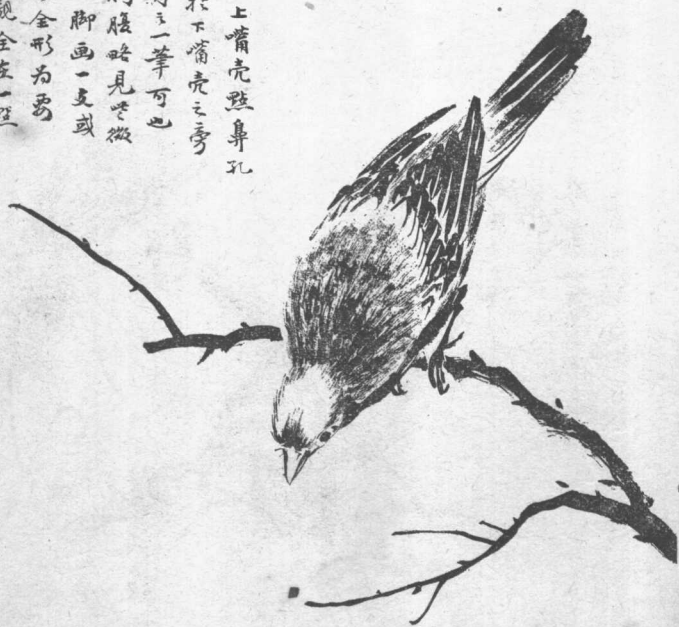 上嘴壳点鼻孔
於下嘴壳之旁
之一筆可也
腹略見些微
脚画一支或
全形为要
观全在一点